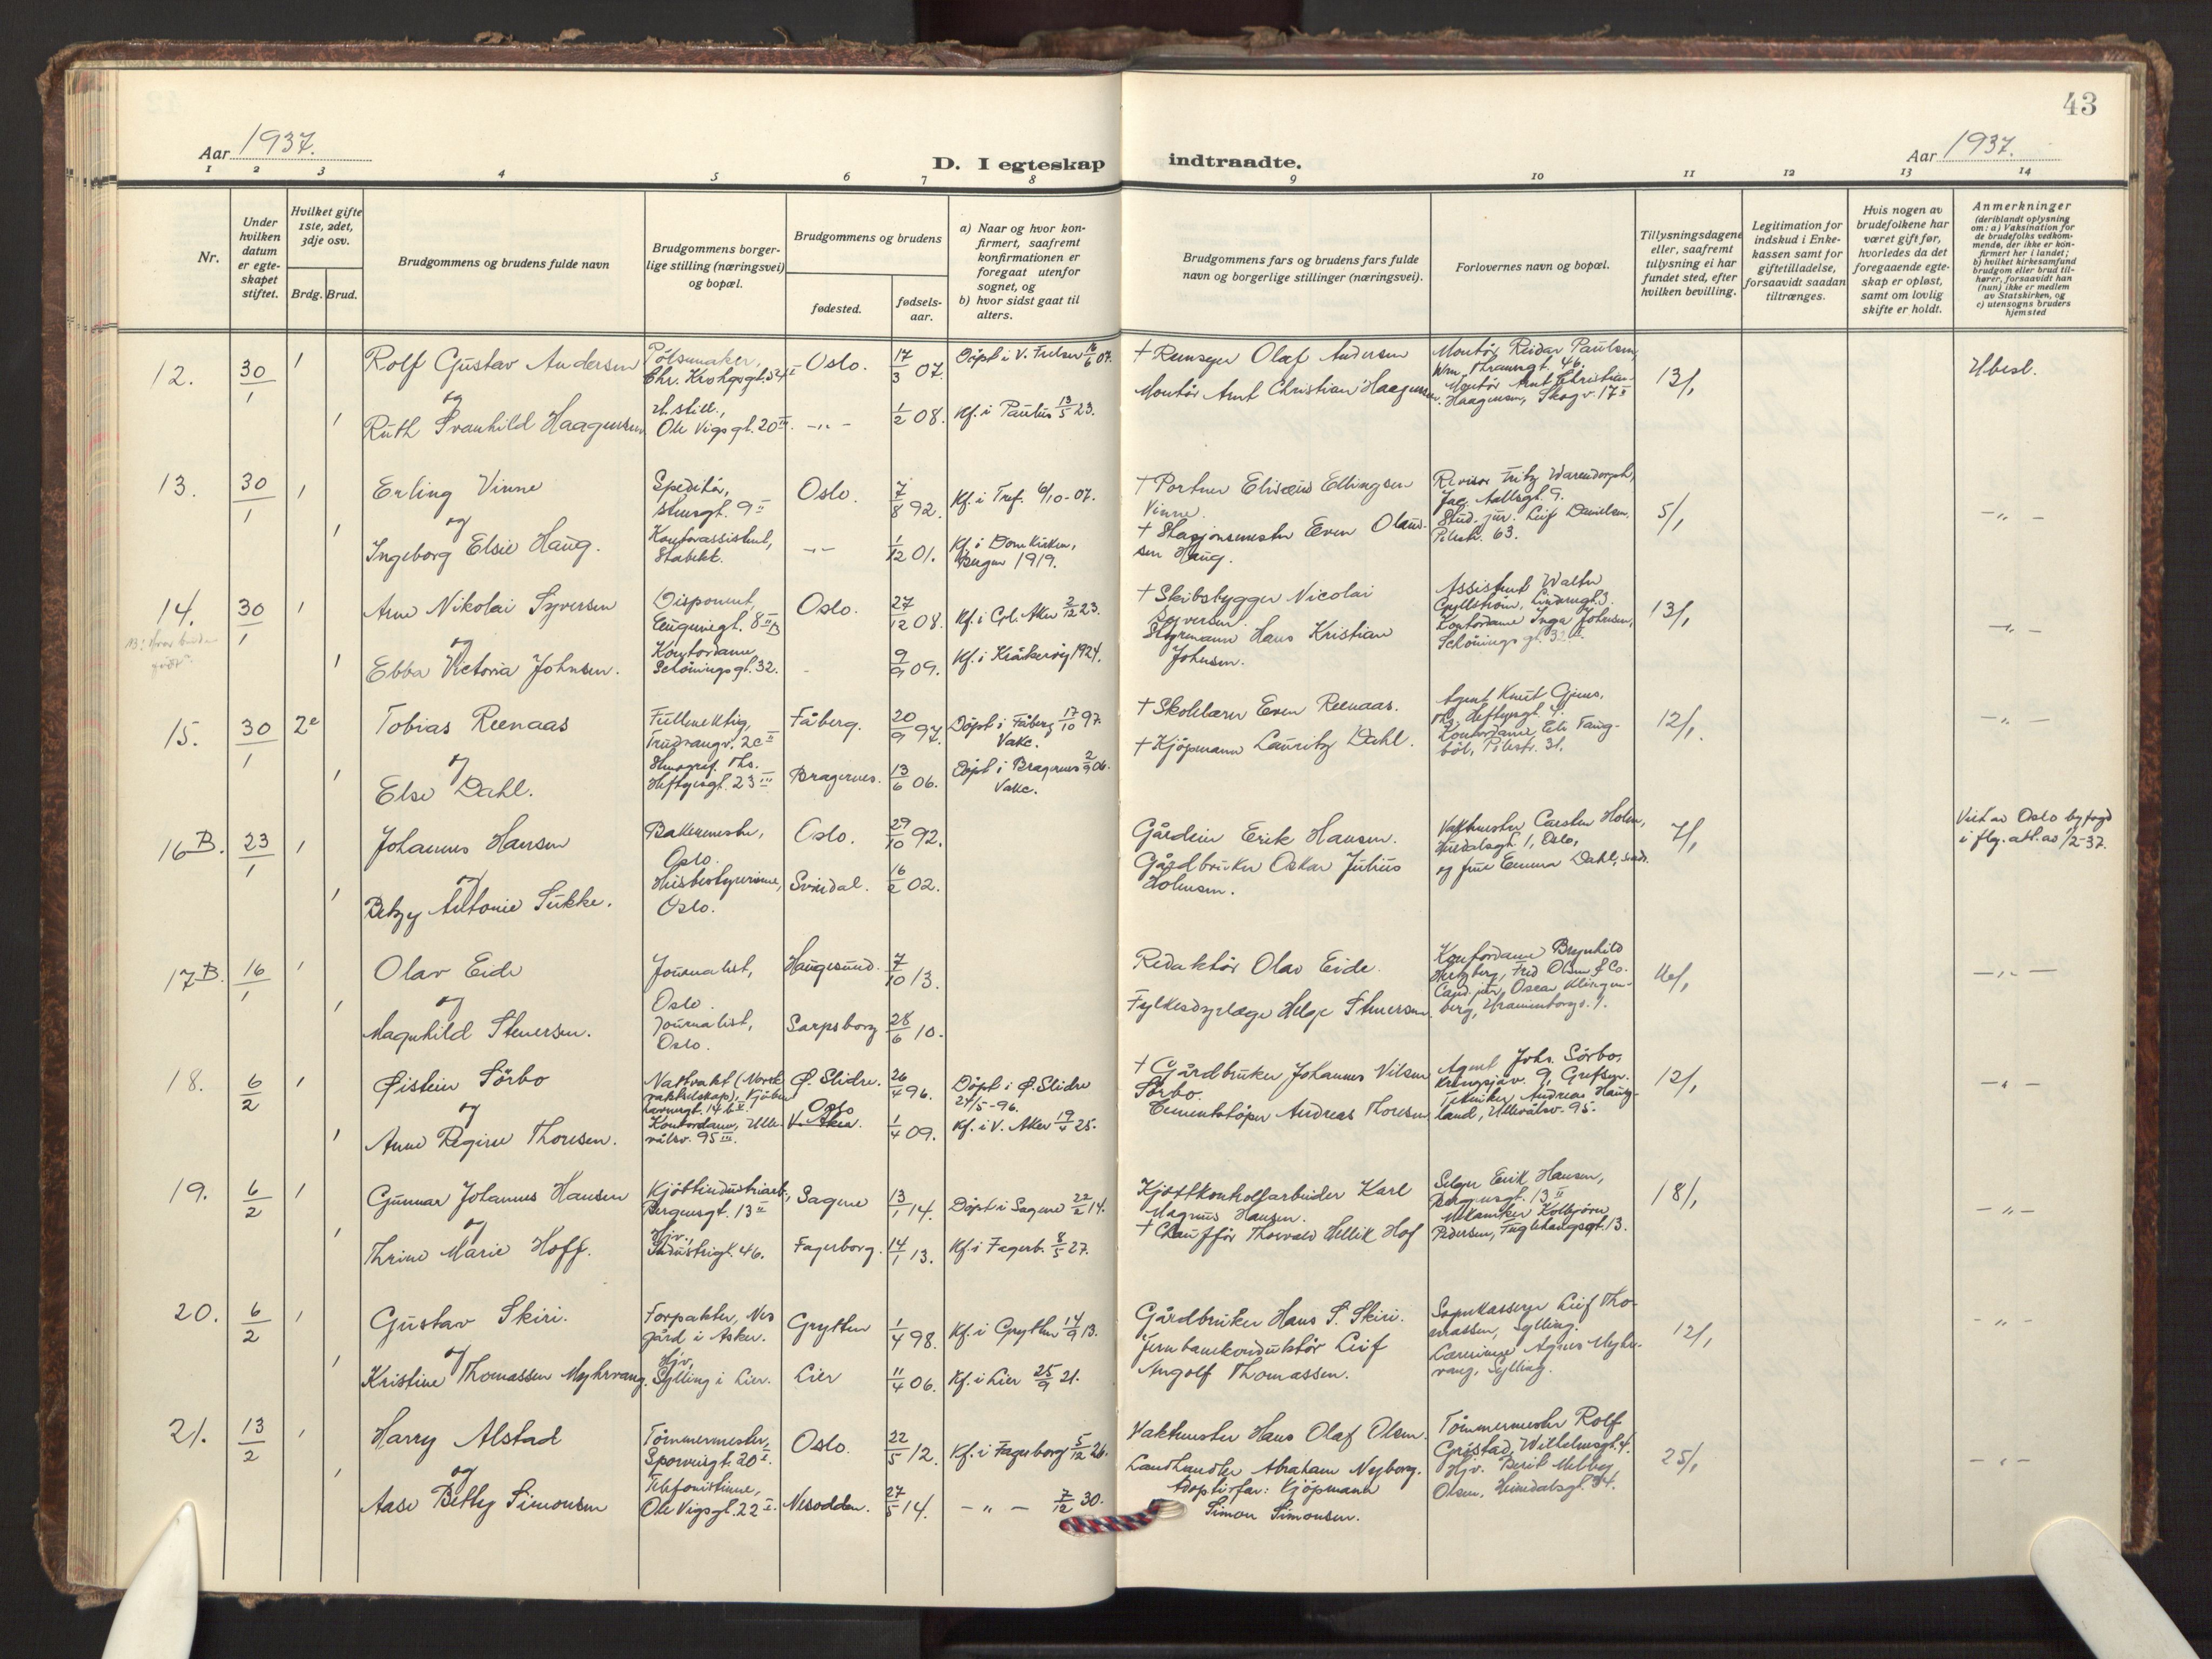 43
Aar 1937.
D. I egteskap indtraadte.
Aar 1937.
1 2 3 4 5 6 7 8 9 10 11 12 13 14
Nr.
Under hvilken datum er egteskapet stiftet.
Hvilket gifte 1ste, 2det, 3dje osv.
Brdg. Brud.
Brudgommens og brudens fulde navn
Brudgommens borgerlige stilling (næringsvei) og bopæl.
Brudgommens og brudens
fødested.
fødselsaar.
a) Naar og hvor konfirmert, saafremt konfirmationen er foregaat utenfor sognet, og
b) hvor sidst gaat til alters.
Brudgommens fars og brudens fars fulde navn og borgerlige stillinger (næringsvei).
Forlovernes navn og bopæl.
Tillysningsdagene eller, saafremt tillysning ei har fundet sted, efter hvilken bevilling.
Legitimation for indskud i Enkekassen samt for giftetilladelse, forsaavidt saadan tiltrænges.
Hvis nogen av brudefolkene har været gift før, hvorledes da det foregaaende egteskap er opløst, samt om lovlig skifte er holdt.
Anmerkninger (deriblandt oplysning om: a) Vaksination for de brudefolks vedkommende, der ikke er konfirmert her i landet; b) hvilket kirkesamfund brudgom eller brud tilhører, forsaavidt han (hun) ikke er medlem av Statskirken, og c) utensogns bruders hjemsted
12. 30/1 1 Rolf Gustav Andersen Pölsemaker, Chr. Krohgsgt. 54 I Oslo. 17/3 07. Döpt i V. Frelser 16/6 07. † Olaf Andersen Montör Reidar Paulsen, Wm. Thranesgt. 46. 13/1 Ubesl.
og
1 Ruth Svanhild Haagensen. U. still., Ole Vigs gt. 20 III. -"- 1/2 08. Kf. i Paulus 13/5 23. Montör Arnt Christian Haagensen. Montör Arnt Christian Haagensen, Skogv. 17 II
13. 30/1 1 Erling Vinne Speditör, 9 II Oslo. 7/8 92. Kf. i Tref. 6/10-07. † Portner Elisæus Ellingsen Vinne. Revisor Fritz Warendorph, Jac. Aallsgt. 9. 5/1 -"-
og
1 Ingeborg Elsie Haug. Kontorassistent, Stabekk. -"- 1/12 01. Kf. i Domkirken, Bergen 1919. † Stasjonsmester Even Olaussen Haug. Stud. jur. Leif Danielsen, Pilestr. 63.
14. 30/1 1 Arne Nikolai Syversen Disponent, Eugeniegt. 8 II B Oslo. 27/12 08. Kf. i Gl. Aker 2/12 23. † Skibsbygger Nicolai Syversen. Assistent Walter Gyllström, 13/1 -"-
og
1 Ebba Victoria Johnsen. Kontordame, Schönings gt. 32. 9/9 09. Kf. i Kråkeröy 1924. Styrmann Hans Kristian Johnsen. Kontordame Inga Johnsen, Schönings gt. 32
15. 30/1 2e Tobias Reenaas Fullmektig, Trudvangv. 2c II Fåberg. 20/9 97. Döpt i Fåberg 17/10 97. Vakc. † Skolelærer Even Reenaas. Agent Knut Gjems, Th. Heftyesgt. 12/1. -"-
og
1 Else Dahl. Stenograf. Ths. Heftyesgt. 23 III Bragernes. 13/6 06. Döpt i Bragernes 2/9 06. Vakc. † Kjöpmann Lauritz Dahl. Kontordame Els Fangböl, Pilestr. 31.
16 B. 23/1 1 Johannes Hansen Bakermester, Oslo. Oslo. 29/10 92. Gårdeier Erik Hansen. Vaktmester Carsten Holm, 1, Oslo, 7/1 Viet av Oslo byfogd i flg. att. av 1/2-37.
og
1 Betzy Antonie Sukke. Husbestyrerinne, Oslo. Svindal. 16/2 02. Gårdbruker Oskar Julius Holmsen. og frue Emma Dahl, smst.
17 B. 16/1 1 Olav Eide Journalist, Oslo. Haugesund. 7/10 13. Redaktör Olav Eide. Kontordame Brynhild Hertzberg, Fred Olsen & Co. -"-
og
1 Magnhild Stenersen. Journalist, Oslo. Sarpsborg 28/6 10. Fylkesdyrlæge Helge Stenersen. Cand. jur. Oscar Klingenberg, Uranienborgv. 1.
18. 6/2 1 Øistein Sörbo Nattvakt (Norsk vaktselskap), Kjöbenhavnergt. 14 b II. Ø. Slidre. 26/4 96. Döpt i Ø. Slidre 24/5-96. † Gårdbruker Johannes Nilsen Sörbo. Agent Johs. Sörbo, Kringsjåv. 9, Grefsen. 12/1 -"-
og
1 Anne Regine Thoresen. Kontordame, Ullevålsv. 95 III. Oslo V. Aker. 1/4 09. Kf. i V. Aker 19/4 25. Cementstöper Andreas Thoresen Tekniker Andreas Haugland, Ullevålsv. 95.
19. 6/2 1 Gunnar Johannes Hansen Kjöttindustriarb., Bergensgt. 13 II Sagene 13/1 14. Döpt i Sagene 22/2 14. Kjöttkontrollarbeider Karl Magnus Hansen. Selger Erik Hansen, Bergensgt. 13 II 18/1 -"-
og
1 Thrine Marie Hoff. Hjv., Industrigt. 46. Fagerborg. 14/1 13. Kf. i Fagerb. 8/5 27. † Chauffør Thorvald Hellik Hof Mekaniker Kolbjörn Pedersen, Fuglehaugsgt. 13.
20. 6/2 1 Gustav Skiri. Forpakter, Nes gård i Asker. Grytten 1/4 98. Kf. i Grytten 14/9 13. Gårdbruker Hans S. Skiri. Sognekasserer Leif Thomassen, Sylling. 12/1 -"-
og
1 Kristine Thomassen Myhrvang. Hjv., Sylling i Lier. Lier 11/4 06. Kf. i Lier 25/9 21. Jernbanekonduktör Leif Angolf Thomassen. Lærerinne Agnes Myhrvang, Sylling.
21. 13/2 1 Harry Alstad Tömmermester, Sporveisgt. 20 I. Oslo. 22/5 12. Kf. i Fagerborg 5/12 26. Vaktmester Hans Olaf Olsen. Tömmermester Rolf Gristad, Wilhelmsgt. 4. 25/1 -"-
og
1 Aase Betty Simonsen Telefonistinne, Ole Vigsgt. 22 I. Nesodden. 27/5 14. -"- 7/12 30. Landhandler Abraham Nyborg. Adoptivfar: Kjöpmann Simon Simonsen. Hjv. Berit Olsen, Heimdalsgt. 34.